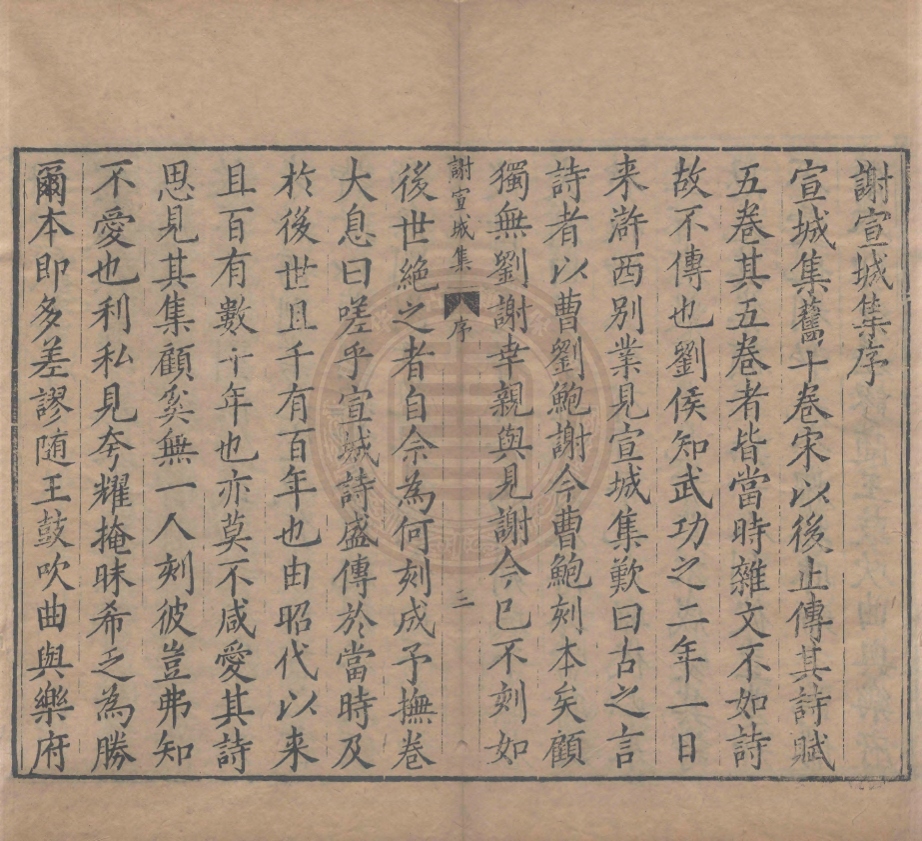 謝宣城集序
宣城集舊十卷宋以後止傳其詩賦
五卷其五卷者皆當時雜文不如詩
故不傳也劉侯知武功之二年一日
来滸西别業見宣城集歎曰古之言
詩者以曹劉鮑謝今曹鮑刻本矣顧
獨無劉謝幸親與見謝今已不刻如
謝宣城集 序 三
後世絶之者自佘為何刻成予撫卷
大息曰嗟乎宣城詩盛傳於當時及
於後世且千有百年也由昭代以来
且百有數十年也亦莫不咸愛其詩
思見其集顧奚無一人刻彼豈弗知
不愛也利私見夸耀掩昧希乏為勝
爾本即多差謬随王鼓吹曲與樂府